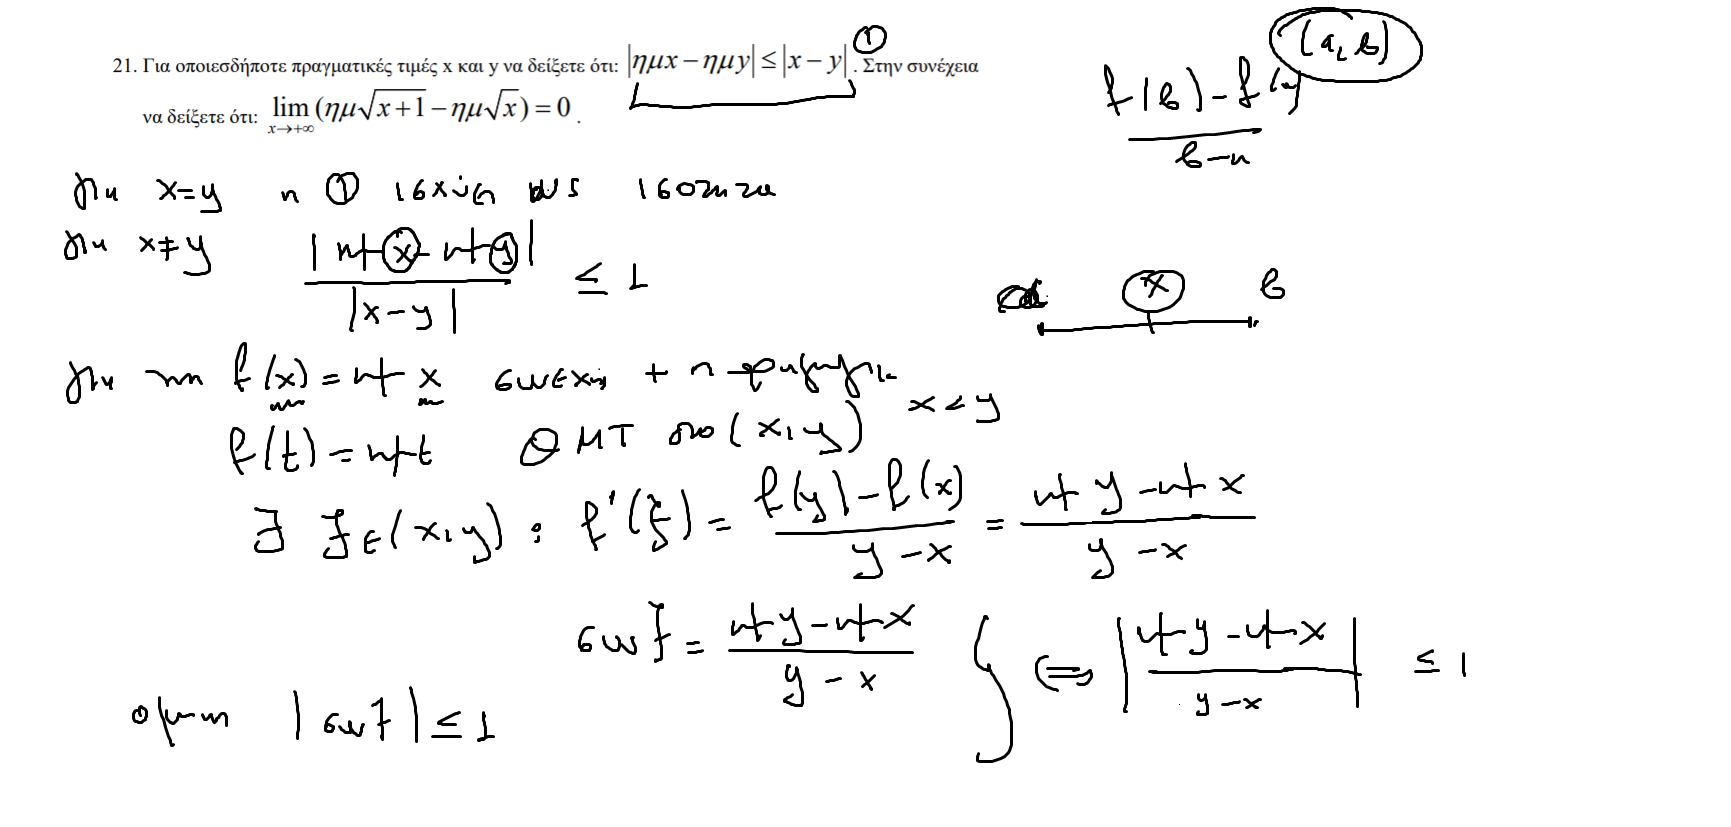 21. Για οποιεσδήποτε πραγματικές τιμές x και y να δείξετε ότι: |ημx − ημy| ≤ |x − y| ①. Στην συνέχεια
να δείξετε ότι: lim x→+∞ (ημ√(x+1) − ημ√x) = 0 .
(α, β)
f(β) − f(α) / β − α
για x=y η ① ισχύει ως ισότητα
για x≠y |ημx − ημy| / |x−y| ≤ 1
α x β
για την f(x) = ημx συνεχής + παραγωγ/μη
f(t) = ημt ΘΜΤ στο (x, y) x<y
∃ ξ∈(x, y) : f'(ξ) = f(y) − f(x) / y − x = ημy − ημx / y − x
συνξ = ημy − ημx / y − x } ⟺ |ημy − ημx / y − x| ≤ 1
όμως |συνξ| ≤ 1